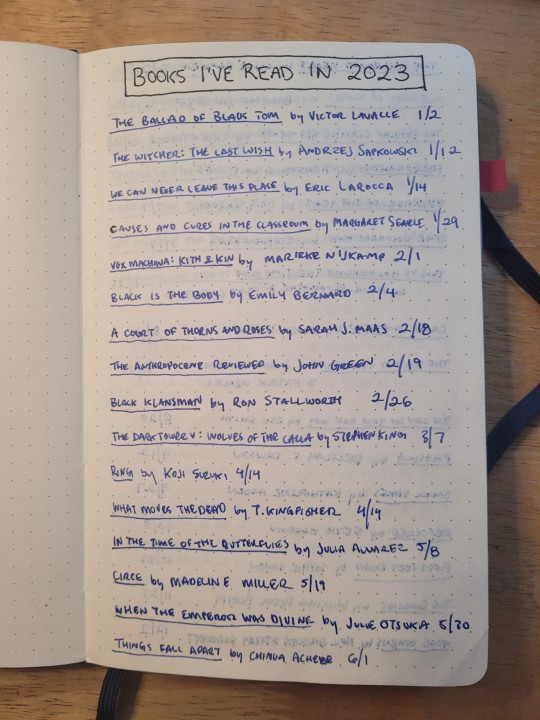 BOOKS I'VE READ IN 2023
THE BALLAD OF BLACK TOM by VICTOR LAVALLE 1/2
THE WITCHER: THE LAST WISH by ANDRZEJ SAPKOWSKI 1/12
WE CAN NEVER LEAVE THIS PLACE by ERIC LAROCCA 1/14
CAUSES AND CURES IN THE CLASSROOM by MARGARET SEARLE 1/29
VOX MACHINA: KITH & KIN by MARIEKE NIJKAMP 2/1
BLACK IS THE BODY by EMILY BERNARD 2/4
A COURT OF THORNS AND ROSES by SARAH J. MAAS 2/18
THE ANTHROPOCENE REVIEWED by JOHN GREEN 2/19
BLACK KLANSMAN by RON STALLWORTH 2/26
THE DARK TOWER V: WOLVES OF THE CALLA by STEPHEN KING 3/7
RING by KOJI SUZUKI 4/14
WHAT MOVES THE DEAD by T. KINGFISHER 4/14
IN THE TIME OF THE BUTTERFLIES by JULIA ALVAREZ 5/8
CIRCE by MADELINE MILLER 5/19
WHEN THE EMPEROR WAS DIVINE by JULIE OTSUKA 5/30
THINGS FALL APART by CHINUA ACHEBE 6/1